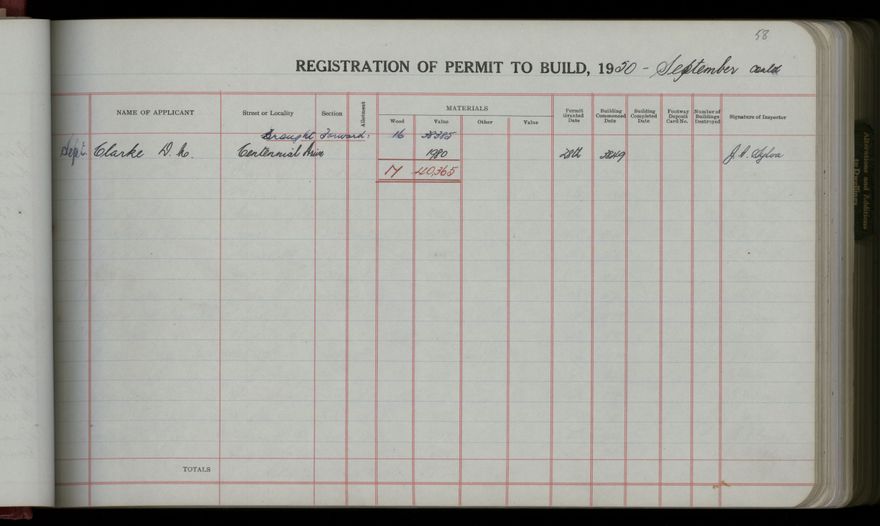 58
REGISTRATION OF PERMIT TO BUILD, 1950 - September contd
NAME OF APPLICANT Street or Locality Section Allotment MATERIALS Wood Value Other Value Permit Granted Date Building Commenced Date Building Completed Date Footway Deposit Card No. Number of Buildings Destroyed Signature of Inspector
Brought Forward: 16 38385
Sept. Clarke D. 1980 Centennial Drive 28th
17 40,365
TOTALS
Alterations and Additions to Dwellings